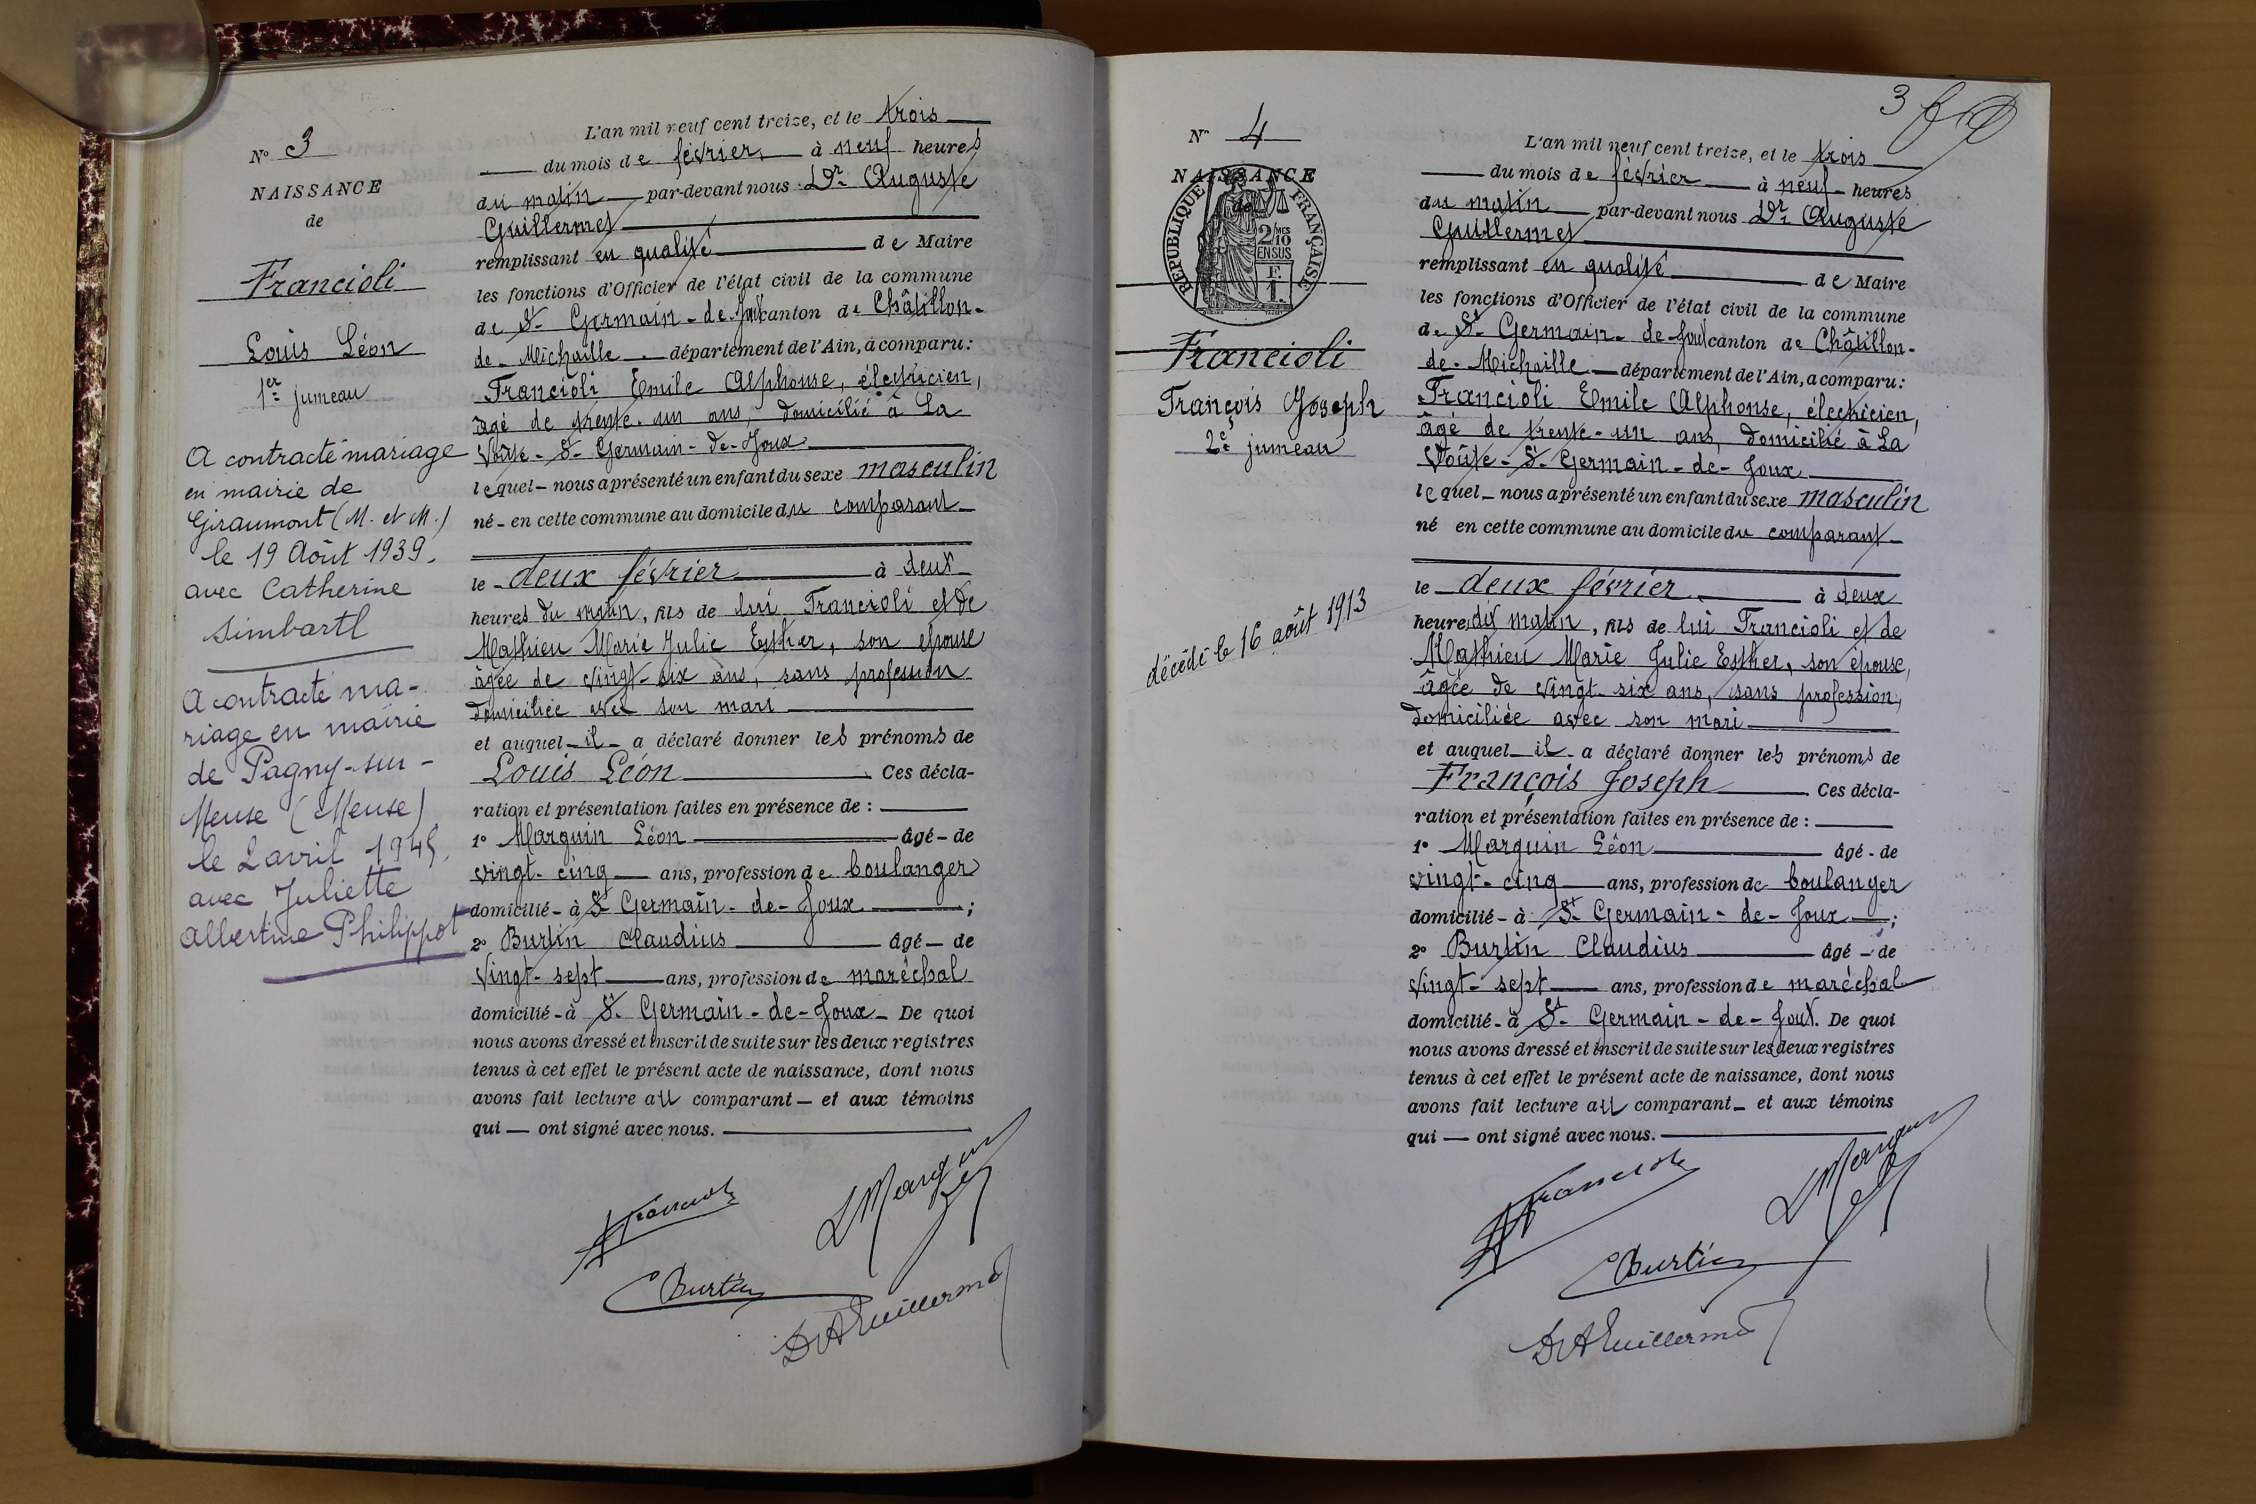 N° 3
NAISSANCE
de
Francioli
Louis Léon
1er jumeau
A contracté mariage
en mairie de
Giraumont (M. et M.)
le 19 Août 1939.
avec Catherine
Simbartl
A contracté ma-
riage en mairie
de Pagny-sur-
Meuse (Meuse)
le 2 avril 1945,
avec Juliette
Albertine Philippot
L'an mil neuf cent treize, et le trois
du mois de février, à neuf heures
du matin par-devant nous Dr Auguste
Guillermet
remplissant en qualité de Maire
les fonctions d'Officier de l'état civil de la commune
de St Germain-de-Joux canton de Châtillon-
de-Michaille département de l'Ain, a comparu:
Francioli Emile Alphonse, électricien,
âgé de trente-un ans, domicilié à La
Voûte-St Germain-de-Joux
lequel nous a présenté un enfant du sexe masculin
né en cette commune au domicile du comparant
le deux février à deux
heures du matin, fils de lui Francioli et de
Mathieu Marie Julie Esther, son épouse
âgée de vingt-six ans, sans profession
domiciliée avec son mari
et auquel il a déclaré donner les prénoms de
Louis Léon Ces décla-
ration et présentation faites en présence de :
1° Marquin Léon âgé de
vingt-cinq ans, profession de boulanger
domicilié à St Germain-de-Joux ;
2° Burtin Claudius âgé de
vingt-sept ans, profession de maréchal
domicilié à St Germain-de-Joux De quoi
nous avons dressé et inscrit de suite sur les deux registres
tenus à cet effet le présent acte de naissance, dont nous
avons fait lecture au comparant et aux témoins
qui ont signé avec nous.
Francioli
LMarquin
CBurtin
Dr AGuillermet
3
N° 4
NAISSANCE
de
RÉPUBLIQUE FRANÇAISE
2/MES
10
EN SUS
F.
1.
Francioli
François Joseph
2e jumeau
décédé le 16 août 1913
L'an mil neuf cent treize, et le trois
du mois de février à neuf heures
du matin par-devant nous Dr Auguste
Guillermet
remplissant en qualité de Maire
les fonctions d'Officier de l'état civil de la commune
de St Germain-de-Joux canton de Châtillon-
de-Michaille département de l'Ain, a comparu:
Francioli Emile Alphonse, électricien,
âgé de trente-un ans, domicilié à La
Voûte-St Germain-de-Joux
lequel nous a présenté un enfant du sexe masculin
né en cette commune au domicile du comparant
le deux février à deux
heures dix matin, fils de lui Francioli et de
Mathieu Marie Julie Esther, son épouse,
âgée de vingt-six ans, sans profession,
domiciliée avec son mari
et auquel il a déclaré donner les prénoms de
François Joseph Ces décla-
ration et présentation faites en présence de :
1° Marquin Léon âgé de
vingt-cinq ans, profession de boulanger
domicilié à St Germain-de-Joux ;
2° Burtin Claudius âgé de
vingt-sept ans, profession de maréchal
domicilié à St Germain-de-Joux. De quoi
nous avons dressé et inscrit de suite sur les deux registres
tenus à cet effet le présent acte de naissance, dont nous
avons fait lecture au comparant et aux témoins
qui ont signé avec nous.
Francioli
LMarquin
CBurtin
Dr AGuillermet